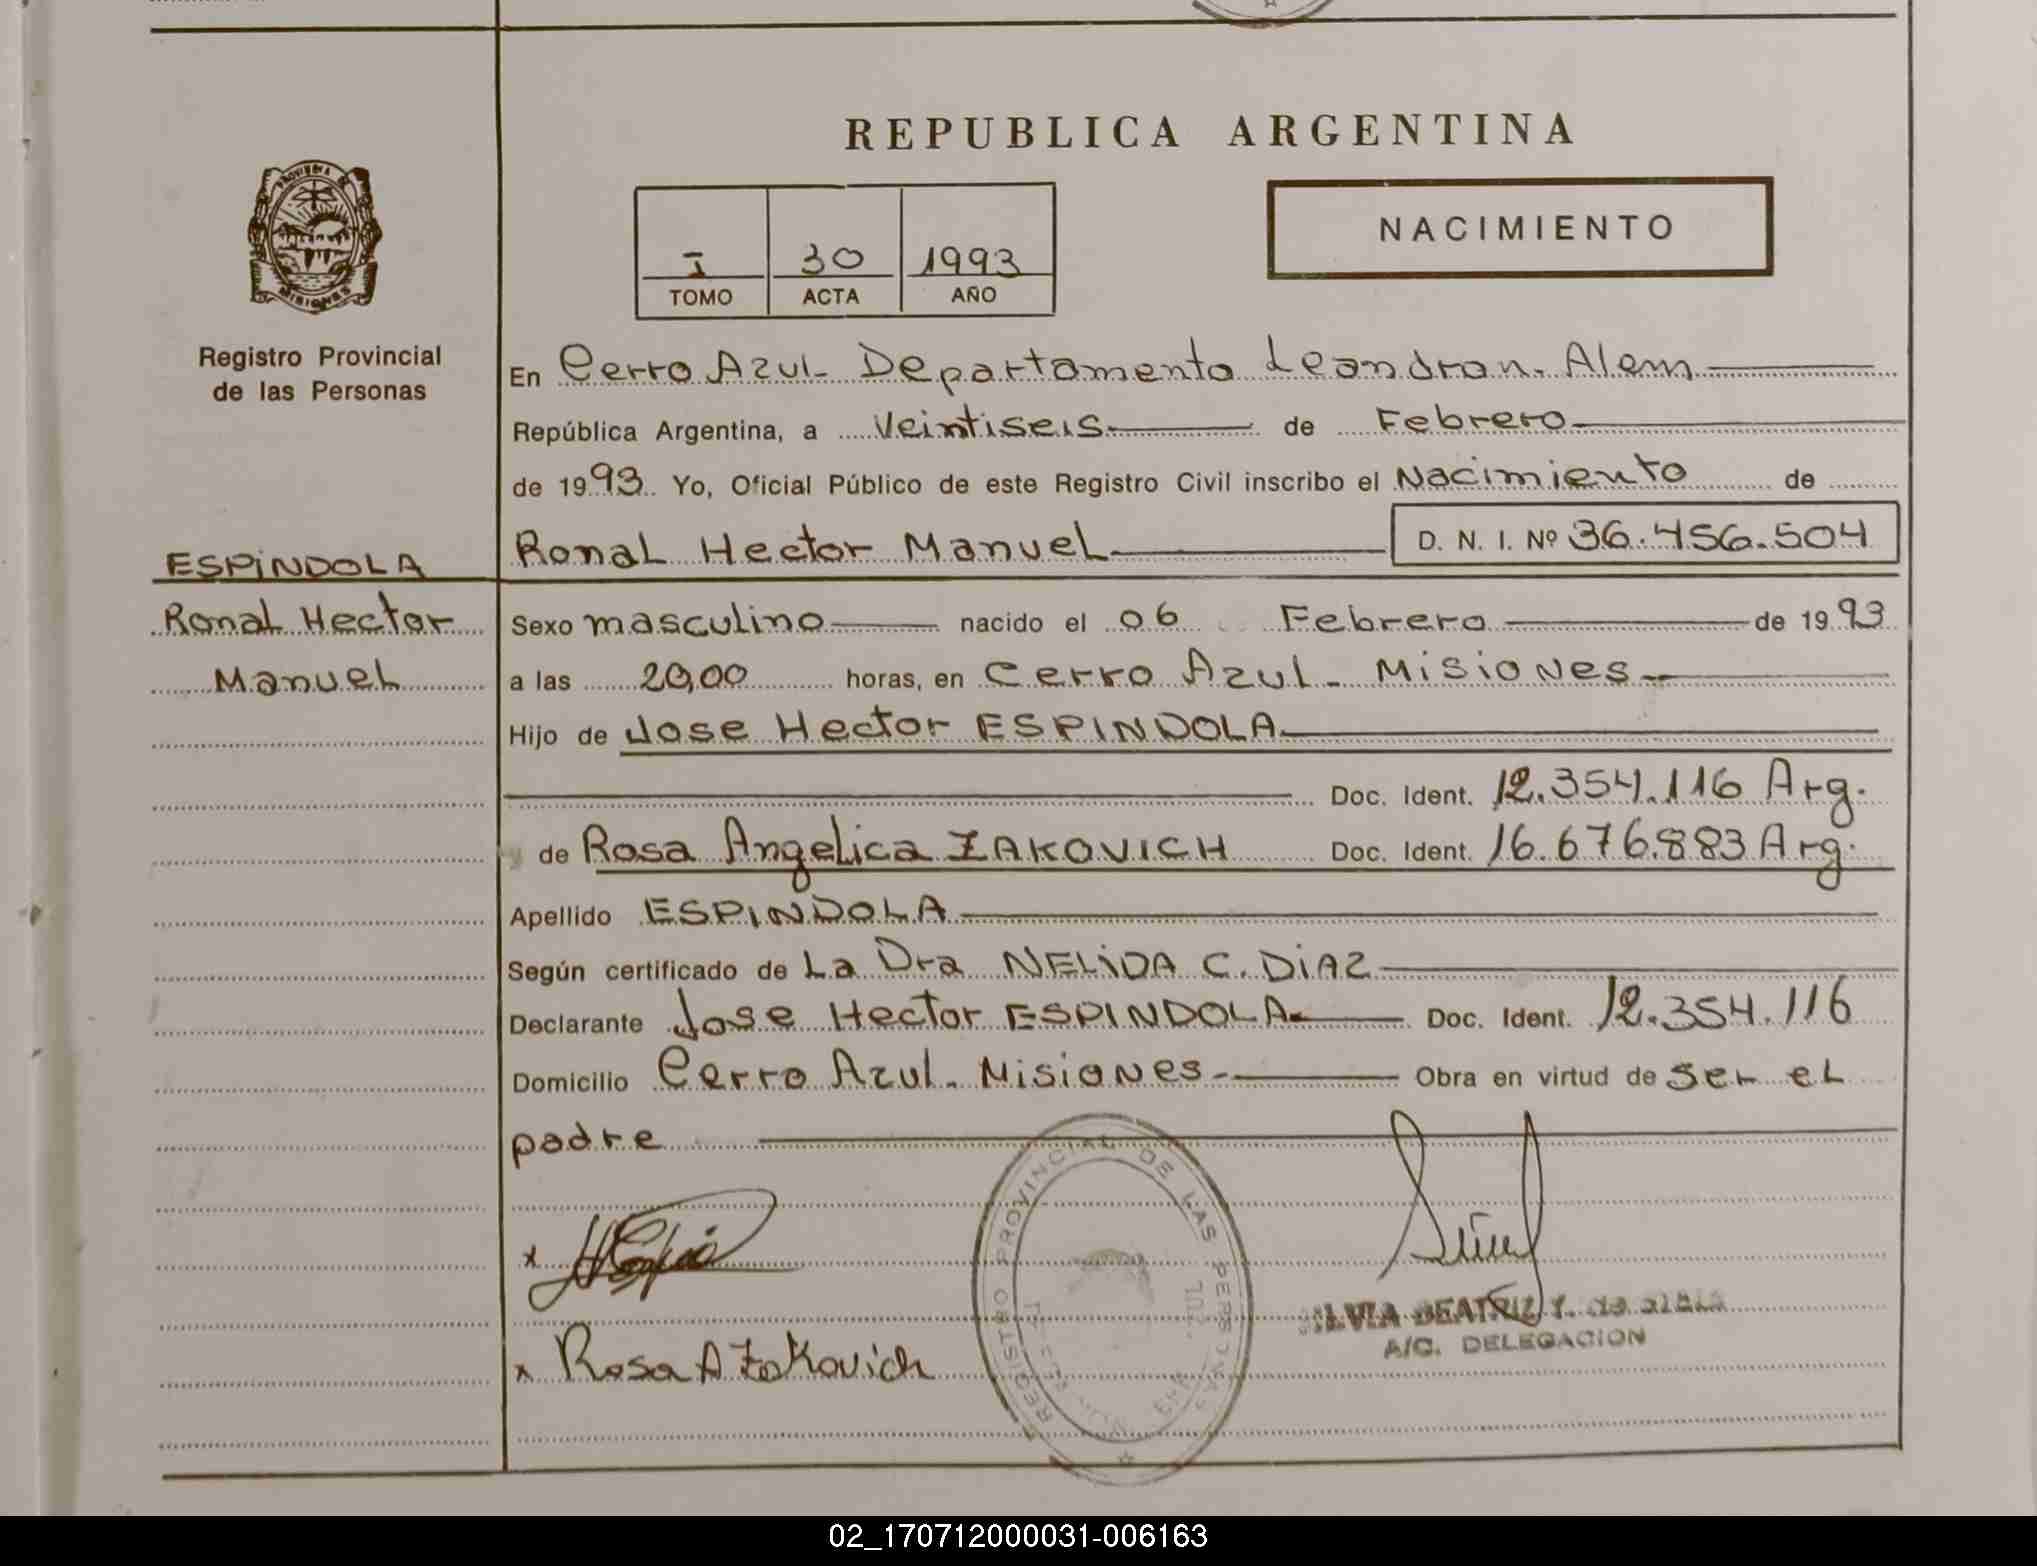 REPUBLICA ARGENTINA
PROVINCIA DE
MISIONES
NACIMIENTO
I 30 1993
TOMO ACTA AÑO
Registro Provincial
de las Personas
ESPINDOLA
Ronal Hector
Manuel
En Cerro Azul - Departamento Leandro n. Alem
República Argentina, a Veintiseis de Febrero
de 1993 Yo, Oficial Público de este Registro Civil inscribo el Nacimiento de
Ronal Hector Manuel D. N. I. Nº 36.456.504
Sexo masculino nacido el 06 Febrero de 1993
a las 20,00 horas, en Cerro Azul - Misiones -
Hijo de Jose Hector ESPINDOLA
Doc. Ident. 12.354.116 Arg.
de Rosa Angelica ZAKOVICH Doc. Ident. 16.676.883 Arg.
Apellido ESPINDOLA
Según certificado de La Dra NELIDA C. DIAZ
Declarante Jose Hector ESPINDOLA Doc. Ident. 12.354.116
Domicilio Cerro Azul - Misiones - Obra en virtud de ser el
padre
REGISTRO PROVINCIAL DE LAS PERSONAS
x
SILVIA BEATRIZ
A/C. DELEGACION
x Rosa A Zakovich
02_170712000031-006163